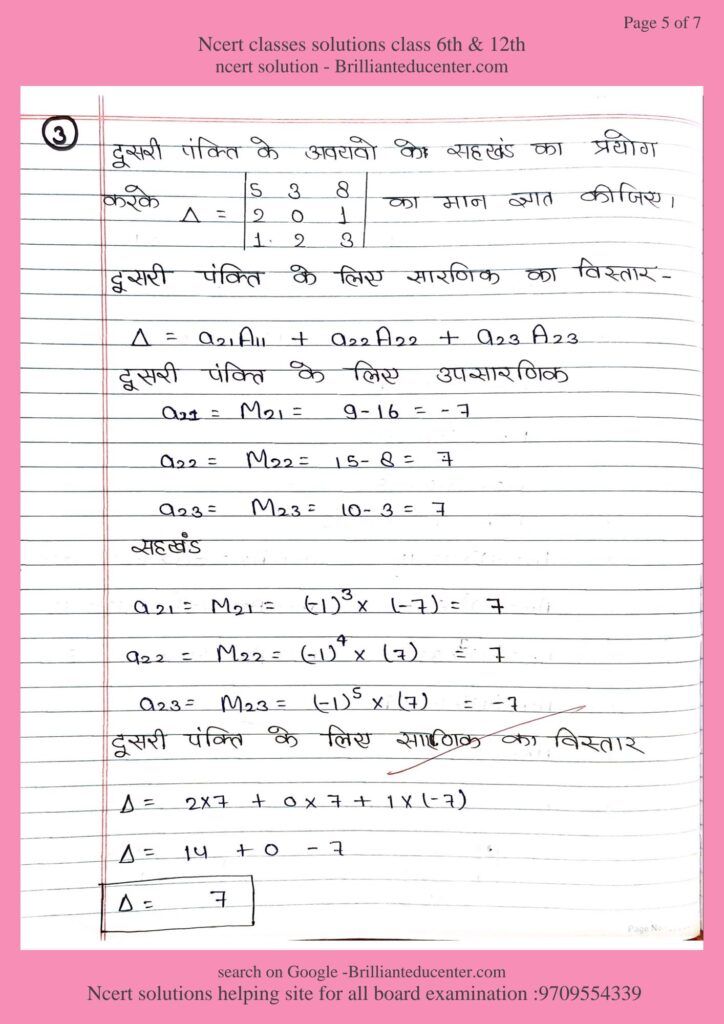 Page 5 of 7
Ncert classes solutions class 6th & 12th
ncert solution - Brillianteducenter.com
3
दूसरी पंक्ति के अवयवो के सहखंड का प्रयोग
करके Δ = | 5 3 8 | का मान ज्ञात कीजिए।
| 2 0 1 |
| 1. 2 3 |
दूसरी पंक्ति के लिए सारणिक का विस्तार-
Δ = a21A11 + a22A22 + a23A23
दूसरी पंक्ति के लिए उपसारणिक
a21 = M21 = 9-16 = -7
a22 = M22 = 15-8 = 7
a23 = M23 = 10-3 = 7
सहखंड
a21 = M21 = (-1)³ x (-7) = 7
a22 = M22 = (-1)⁴ x (7) = 7
a23 = M23 = (-1)⁵ x (7) = -7
दूसरी पंक्ति के लिए का विस्तार
Δ = 2x7 + 0x7 + 1x(-7)
Δ = 14 + 0 - 7
Δ = 7
Page No.
search on Google -Brillianteducenter.com
Ncert solutions helping site for all board examination :9709554339